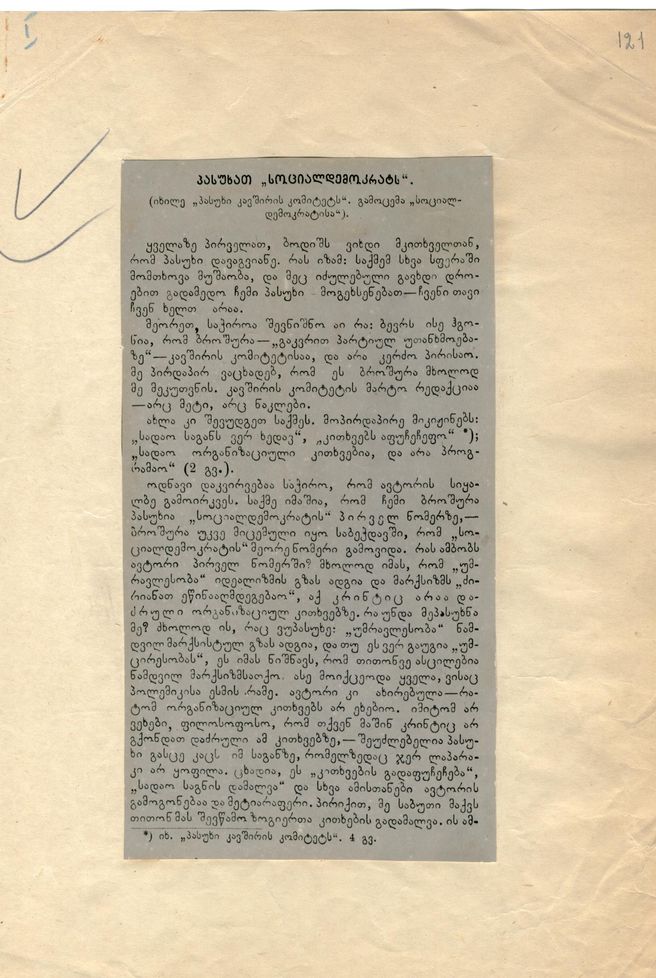 I
121
პასუხათ „სოციალდემოკრატს“.
(იხილე „პასუხი კავშირის კომიტეტს“. გამოცემა „სოციალ-
დემოკრატისა“).
ყველაზე პირველათ, ბოდიშს ვიხდი მკითხველთან,
რომ პასუხი დავაგვიანე. რას იზამ: საქმემ სხვა სფერაში
მომთხოვა მუშაობა, და მეც იძულებული გავხდი დრო-
ებით გადამედო ჩემი პასუხი – მოგეხსენებათ—ჩვენი თავი
ჩვენ ხელთ არაა.
მეორეთ, საჭიროა შევნიშნო აი რა: ბევრს ისე ჰგო-
ნია, რომ ბროშურა—„გაკვრით პარტიულ უთანხმოება-
ზე“—კავშირის კომიტეტისაა, და არა კერძო პირისაო.
მე პირდაპირ ვაცხადებ, რომ ეს ბროშურა მხოლოდ
მე მეკუთვნის. კავშირის კომიტეტის მარტო რედაქციაა
—არც მეტი, არც ნაკლები.
ახლა კი შევუდგეთ საქმეს. მოპირდაპირე მიკიჟინებს:
„სადაო საგანს ვერ ხედავ“, „კითხვებს აფუჩეჩეფო“ *);
„სადაო ორგანიზაციული კითხვებია, და არა პროგ-
რამაო“ (2 გვ.).
ოდნავი დაკვირვებაა საჭირო, რომ ავტორის სიყა-
ლბე გამოირკვეს. საქმე იმაშია, რომ ჩემი ბროშურა
პასუხია „სოციალდემოკრატის“ პირველ ნომერზე,—
ბროშურა უკვე მიცემული იყო საბეჭდავში, რომ „სო-
ციალდემოკრატის“ მეორე ნომერი გამოვიდა. რას ამბობს
ავტორი პირველ ნომერში? მხოლოდ იმას, რომ „უმ-
რავლესობა“ იდეალიზმის გზას ადგია და მარქსიზმს „ძი-
რიანათ ეწინააღმდეგებაო“, აქ კრინტიც არაა და-
ძრული ორგანიზაციულ კითხვებზე. რა უნდა მეპასუხნა
მე? მხოლოდ ის, რაც ვუპასუხე: „უმრავლესობა“ ნამ-
დვილ მარქსისტულ გზას ადგია, და თუ ეს ვერ გაუგია „უმ-
ცირესობას“, ეს იმას ნიშნავს, რომ თითონვე ასცილებია
ნამდვილ მარქსიზმსაოქო. ასე მოიქცეოდა ყველა, ვისაც
პოლემიკისა ესმის რამე. ავტორი კი ახირებულა—რა-
ტომ ორგანიზაციულ კითხვებს არ ეხებიო. იმიტომ არ
ვეხები, ფილოსოფოსო, რომ თქვენ მაშინ კრინტიც არ
გქონდათ დაძრული ამ კითხვებზე,—შეუძლებელია პასუ-
ხი გასცე კაცს იმ საგანზე, რომელზედაც ჯერ ლაპარა-
კი არ ყოფილა. ცხადია, ეს „კითხვების გადაფუჩეჩება“,
„სადაო საგნის დამალვა“ და სხვა ამისთანები ავტორის
გამოგონებაა და მეტი არაფერი. პირიქით, მე საბუთი მაქვს
თითონ მას შევწამო ზოგიერთა კითხების გადამალვა. ის ამ-
*) იხ. „პასუხი კავშირის კომიტეტს“. 4 გვ.